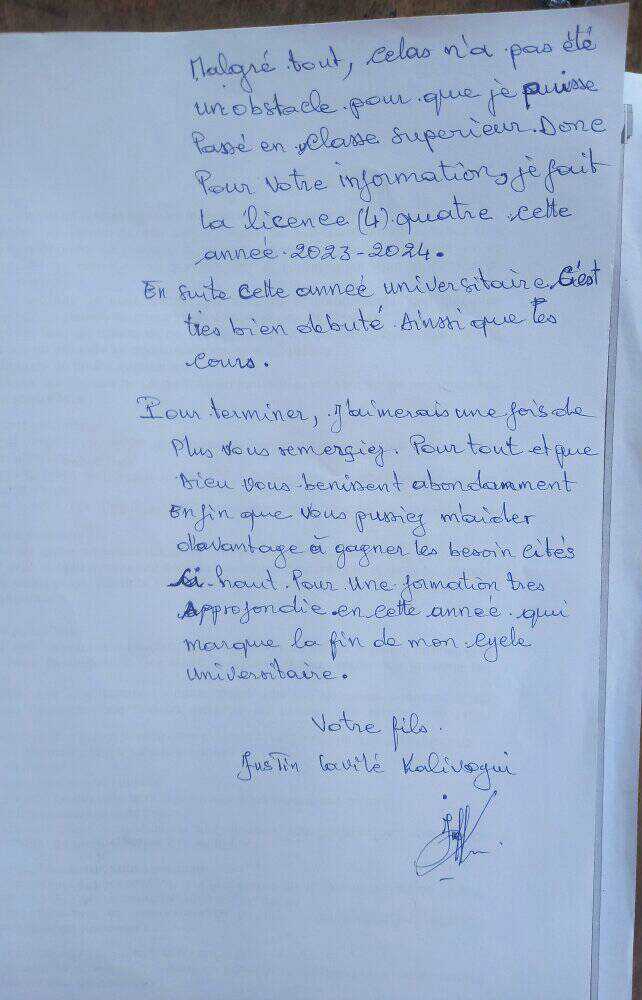 Malgré tout, celas n'a pas été
un obstacle pour que je puisse
Passé en classe superieur. Donc
Pour votre information, je fait
la licence (4) quatre cette
année 2023-2024.
En suite cette anneé universitaire c'est
très bien debuté. Ainsi que les
cours.
Pour terminer, J'aimerais une fois de
Plus vous remergiez. Pour tout et que
Dieu vous benissent abondamment
Enfin que vous pussiez m'aider
d'avantage à gagner les besoin cités
ci-haut. Pour une formation tres
Approfondie en cette anneé qui
marque la fin de mon cycle
universitaire.
Votre fils.
Justin Cavité Kalivogui